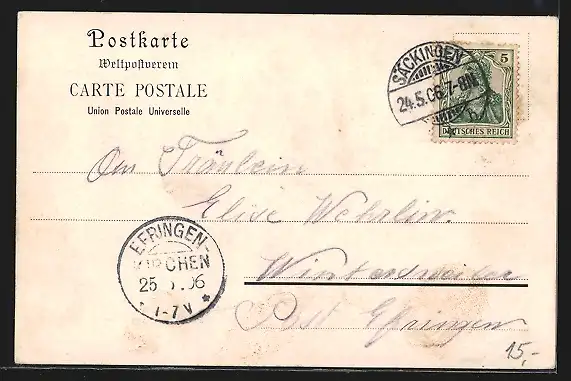 Postkarte
Weltpostverein
CARTE POSTALE
Union Postale Universelle
SÄCKINGEN
24.5.06.7-8N.
5
DEUTSCHES REICH
An Fräulein
Elise Wehrlin
EFRINGEN-
KIRCHEN
25. .06
* 1-7V *
Wintersweiler
Post Efringen
15,-